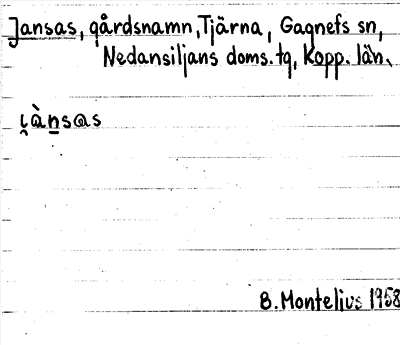 Jansas, gårdsnamn, Tjärna, Gagnefs sn,
Nedansiljans doms. tg, Kopp. län.
i̯ànsas
B. Montelius 1958